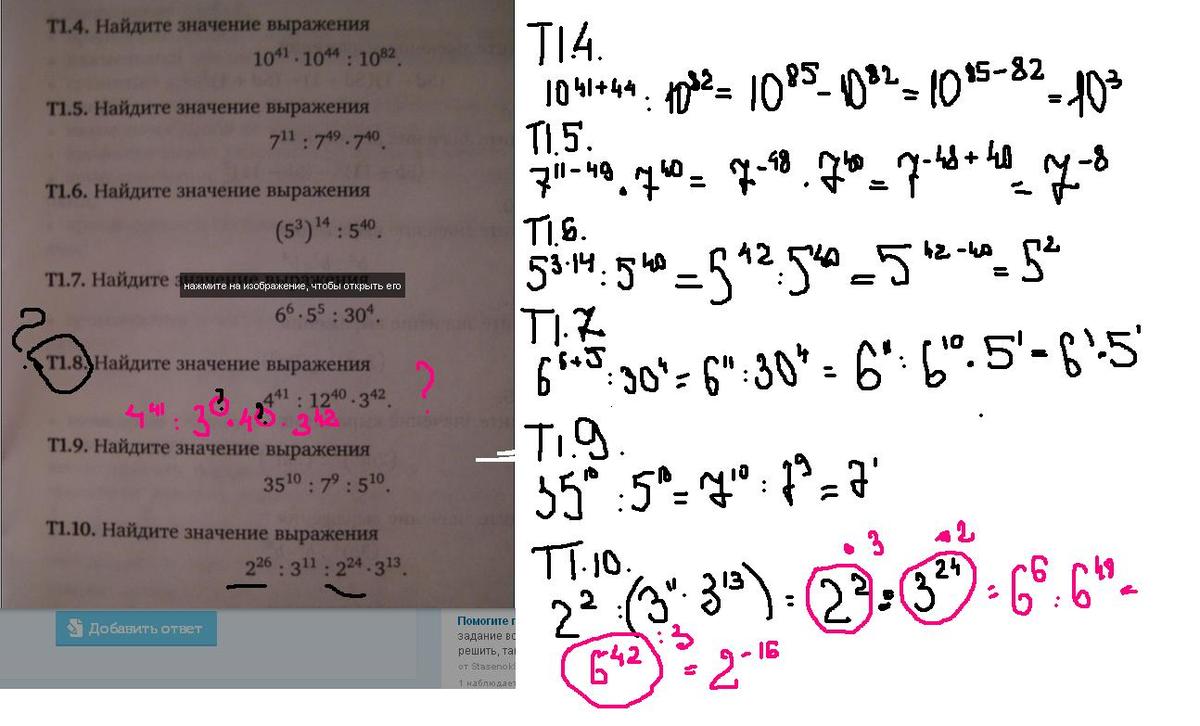 Т1.4. Найдите значение выражения
10⁴¹ · 10⁴⁴ : 10⁸².
Т1.5. Найдите значение выражения
7¹¹ : 7⁴⁹ · 7⁴⁰.
Т1.6. Найдите значение выражения
(5³)¹⁴ : 5⁴⁰.
Т1.7. Найдите значение выражения
нажмите на изображение, чтобы открыть его
6⁶ · 5⁵ : 30⁴.
?
Т1.8. Найдите значение выражения
4⁴¹ : 12⁴⁰ · 3⁴². ?
4⁴¹ : 3^? · 4^? · 3⁴²
Т1.9. Найдите значение выражения
35¹⁰ : 7⁹ : 5¹⁰.
Т1.10. Найдите значение выражения
2²⁶ : 3¹¹ : 2²⁴ · 3¹³.
Добавить ответ
Помогите
задание
решить,
от
1 наблюдает
Т1.4.
10⁴¹⁺⁴⁴ : 10⁸² = 10⁸⁵ - 10⁸² = 10⁸⁵⁻⁸² = 10³
Т1.5.
7¹¹⁻⁴⁹ · 7⁴⁰ = 7⁻⁴⁸ · 7⁴⁰ = 7⁻⁴⁸⁺⁴⁰ = 7⁻⁸
Т1.6.
5³·¹⁴ : 5⁴⁰ = 5⁴² : 5⁴⁰ = 5⁴²⁻⁴⁰ = 5²
Т1.7
6⁶⁺⁵ : 30⁴ = 6¹¹ : 30⁴ = 6¹¹ : 6¹⁰ · 5¹ = 6¹ · 5¹
Т1.9.
35¹⁰ : 5¹⁰ = 7¹⁰ : 7⁹ = 7¹
Т1.10.
· 3 · 2
2² : (3¹¹ · 3¹³) = 2² : 3²⁴ = 6⁶ : 6⁴⁸ =
6⁴² : 3 = 2⁻¹⁶